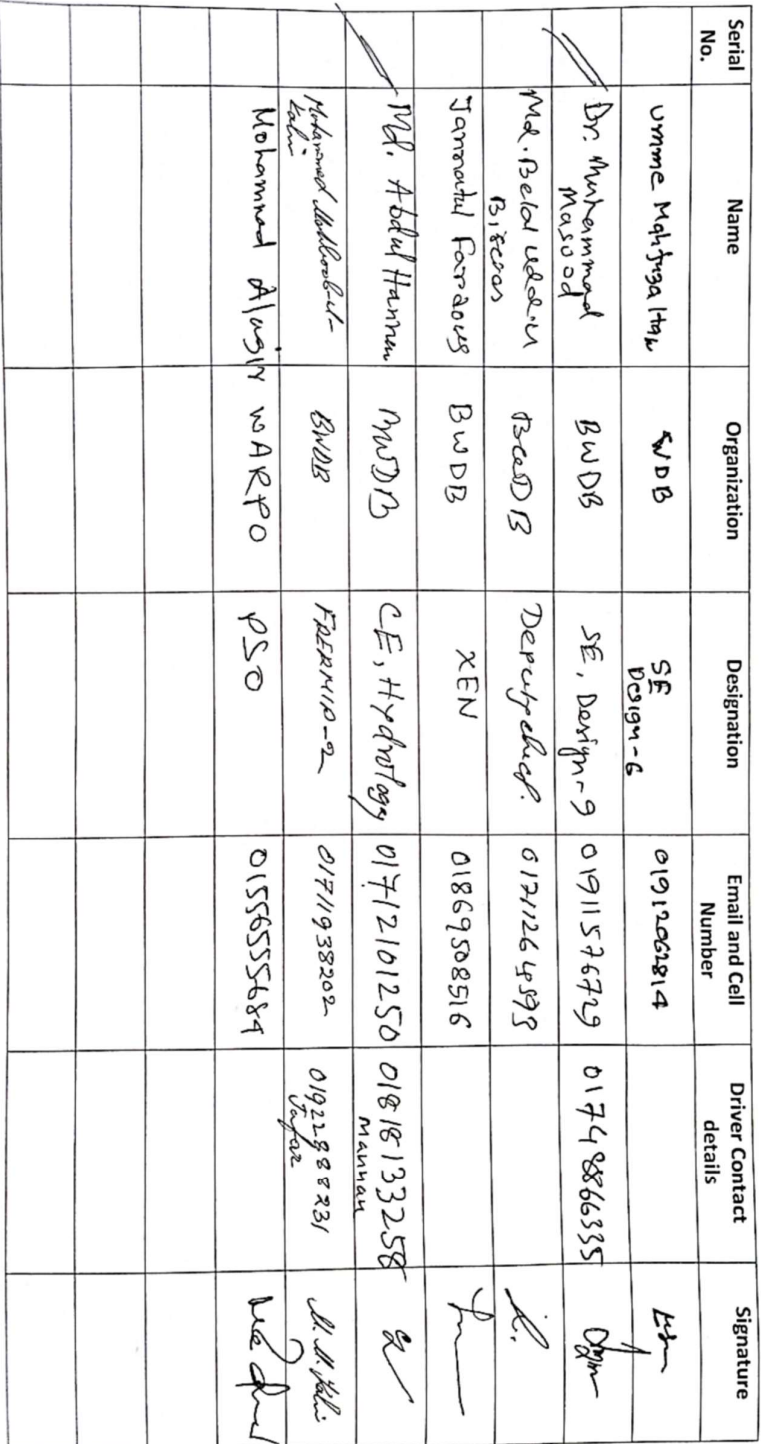 Serial No. Name Organization Designation Email and Cell Number Driver Contact details Signature
Umme Mahfuza Haq BWDB SE Design-6 01912062814
Dr. Muhammad Masood BWDB SE, Design-9 01911576729 01748866335
Md. Belal uddin Biswas BWDB Deputy chief.
Jannatul Fardous BWDB XEN 01869508516
Md. Abdul Hannan BWDB CE, Hydrology 01712101250 01818133258 Mannan
Mohammed BWDB FRERMIP-2 01711938202 01922988231
Mohammad Alamgir WARPO PSO 01556555684